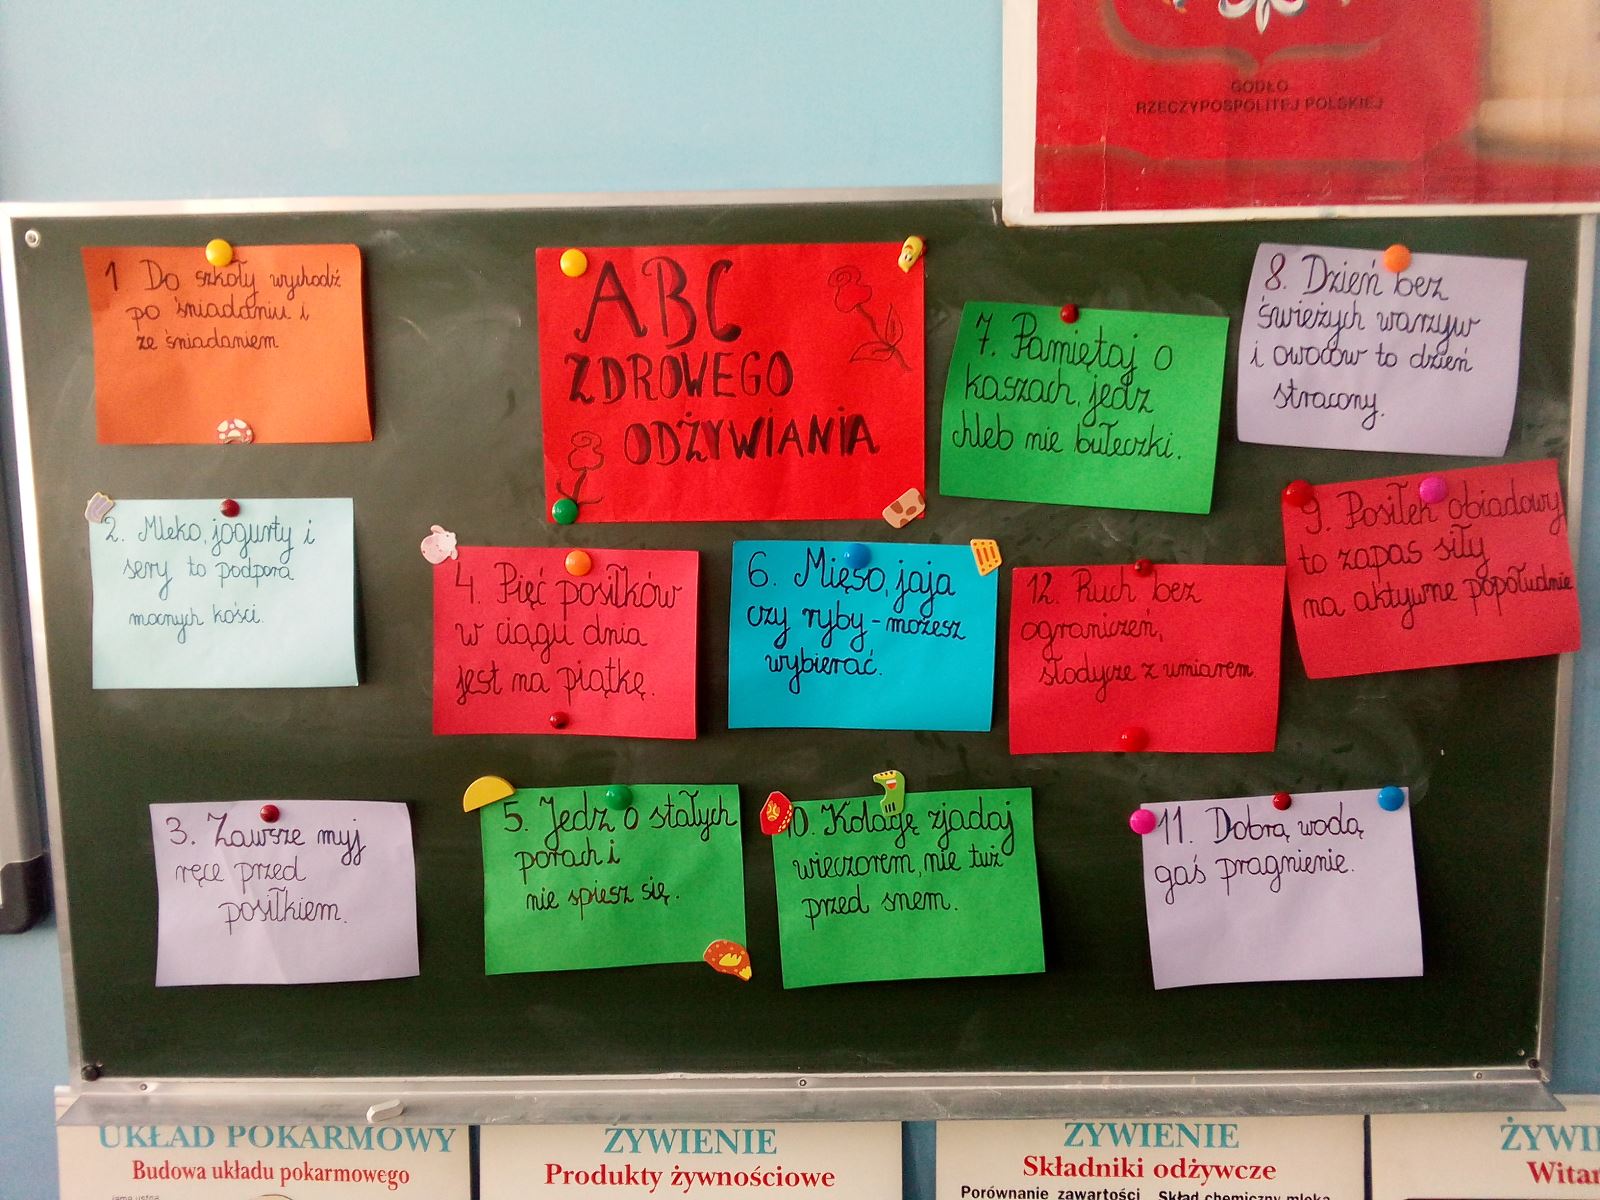 GODŁO
RZECZYPOSPOLITEJ POLSKIEJ
ABC
ZDROWEGO
ODŻYWIANIA
1 Do szkoły wychodź
po śniadaniu i
ze śniadaniem
2. Mleko, jogurty i
sery to podpora
mocnych kości.
3. Zawsze myj
ręce przed
posiłkiem.
4. Pięć posiłków
w ciągu dnia
jest na piątkę.
5. Jedz o stałych
porach i
nie spiesz się.
6. Mięso, jaja
czy ryby - możesz
wybierać.
7. Pamiętaj o
kaszach, jedz
chleb nie bułeczki.
8. Dzień bez
świeżych warzyw
i owoców to dzień
stracony.
9. Posiłek obiadowy
to zapas siły
na aktywne popołudnie
10. Kolację zjadaj
wieczorem, nie tuż
przed snem.
11. Dobrą wodą
gaś pragnienie.
12. Ruch bez
ograniczeń,
słodycze z umiarem.
UKŁAD POKARMOWY
Budowa układu pokarmowego
jama ustna
ŻYWIENIE
Produkty żywnościowe
ŻYWIENIE
Składniki odżywcze
Porównanie zawartości Skład chemiczny mleka